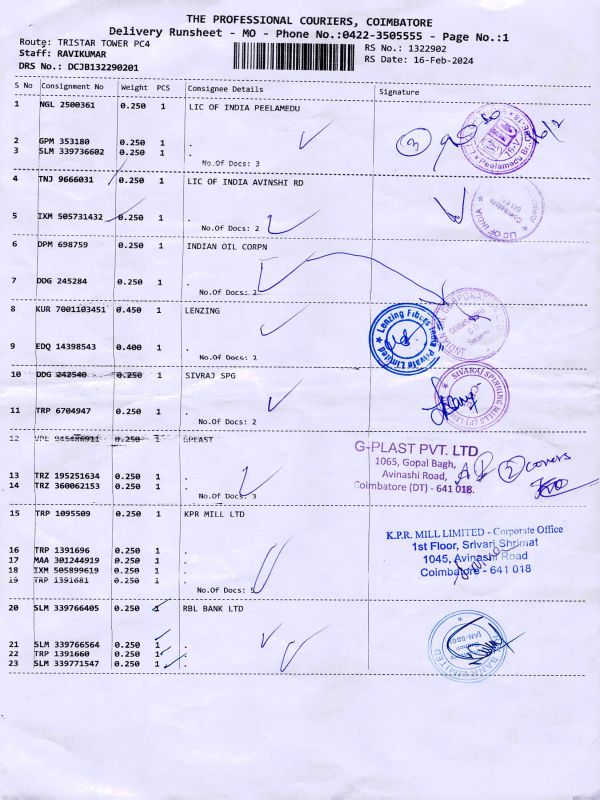 THE PROFESSIONAL COURIERS, COIMBATORE
Delivery Runsheet - MO - Phone No.:0422-3505555 - Page No.:1
Route: TRISTAR TOWER PC4
RS No.: 1322902
Staff: RAVIKUMAR
RS Date: 16-Feb-2024
DRS No.: DCJB132290201
S No Consignment No Weight PCS Consignee Details Signature
1 NGL 2500361 0.250 1 LIC OF INDIA PEELAMEDU
2 GPM 353180 0.250 1 .
3 SLM 339736602 0.250 1 .
No.Of Docs: 3
4 TNJ 9666031 0.250 1 LIC OF INDIA AVINSHI RD
5 IXM 505731432 0.250 1 .
No.Of Docs: 2
6 DPM 698759 0.250 1 INDIAN OIL CORPN
7 DDG 245284 0.250 1 .
No.Of Docs: 2
8 KUR 7001103451 0.450 1 LENZING
9 EDQ 14398543 0.400 1 .
No.Of Docs: 2
Lenzing Fibers India Private Limited
10 DDG 242540 0.250 1 SIVRAJ SPG
11 TRP 6704947 0.250 1 .
No.Of Docs: 2
12 VPL 945486911 0.250 1 GPLAST
G-PLAST PVT. LTD
1065, Gopal Bagh,
Avinashi Road,
Coimbatore (DT) - 641 018.
2 covers
13 TRZ 195251634 0.250 1 .
14 TRZ 360062153 0.250 1 .
No.Of Docs: 3
15 TRP 1095509 0.250 1 KPR MILL LTD
K.P.R. MILL LIMITED - Corporate Office
1st Floor, Srivari Shrimat
1045, Avinashi Road
Coimbatore - 641 018
16 TRP 1391696 0.250 1 .
17 MAA 301244919 0.250 1 .
18 IXM 505899619 0.250 1 .
19 TRP 1391681 0.250 1 .
No.Of Docs: 5
20 SLM 339766405 0.250 1 RBL BANK LTD
21 SLM 339766564 0.250 1 .
22 TRP 1391660 0.250 1 .
23 SLM 339771547 0.250 1 .